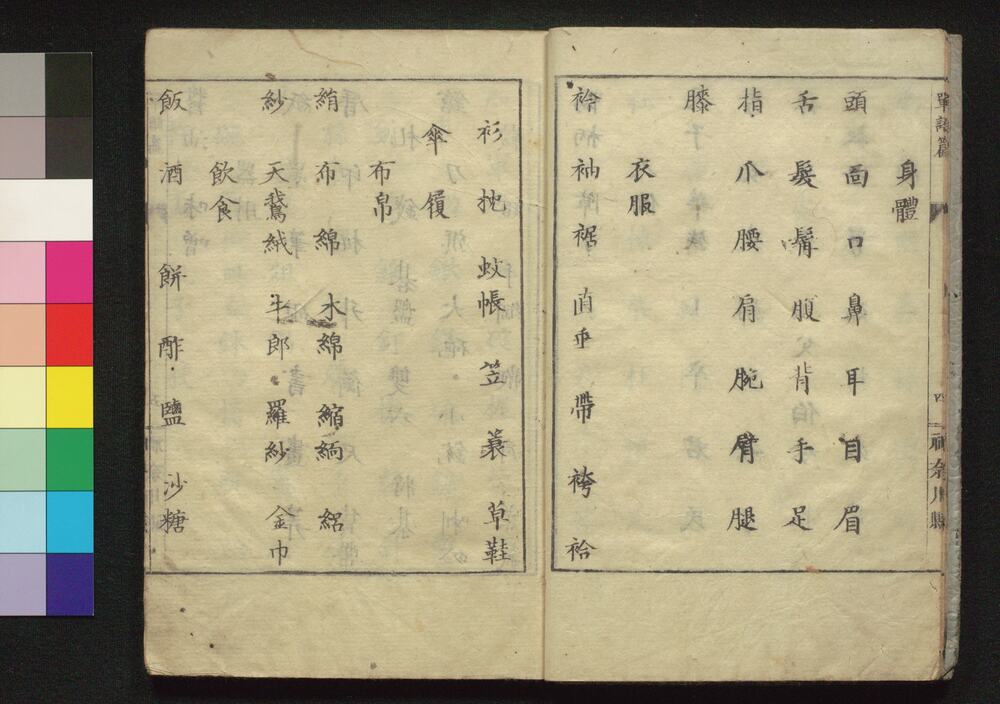 單語篇
四
神奈川縣
身體
頭 面 口 鼻 耳 目 眉
舌 髮 鬢 腹 背 手 足
指 爪 腰 肩 腕 臂 腿
膝
衣服
袖 裾 直垂 帶 袴 袷
衫 蚊帳 笠 蓑 草鞋
傘 履
布帛
絹 布 綿 木綿 縮緬 絽
紗 天鵞絨 牛郎 羅紗 金巾
飲食
飯 酒 餅 酢 鹽 沙糖